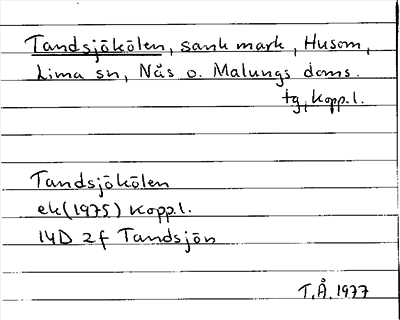 Tandsjökölen, sank mark, Husom,
Lima sn, Nås o. Malungs doms.
tg, Kopp.l.
Tandsjökölen
ek (1975) Kopp.l.
14D 2f Tandsjön
T.Å. 1977